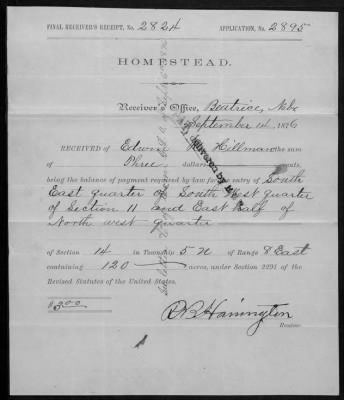 FINAL RECEIVER'S RECEIPT, No. 2824 APPLICATION, No. 2895
HOMESTEAD.
Receiver's Office, Beatrice, Neb
September 14, 1876
RECEIVED of Edwin Hillman the sum
of Three dollars cents,
being the balance of payment required by law for the entry of South
East quarter of South West quarter
of Section 11 and East half of
North west quarter
of Section 14 in Township 5 N of Range 8 East
containing 120 acres, under Section 2291 of the
Revised Statutes of the United States.
$3.00
Receiver.